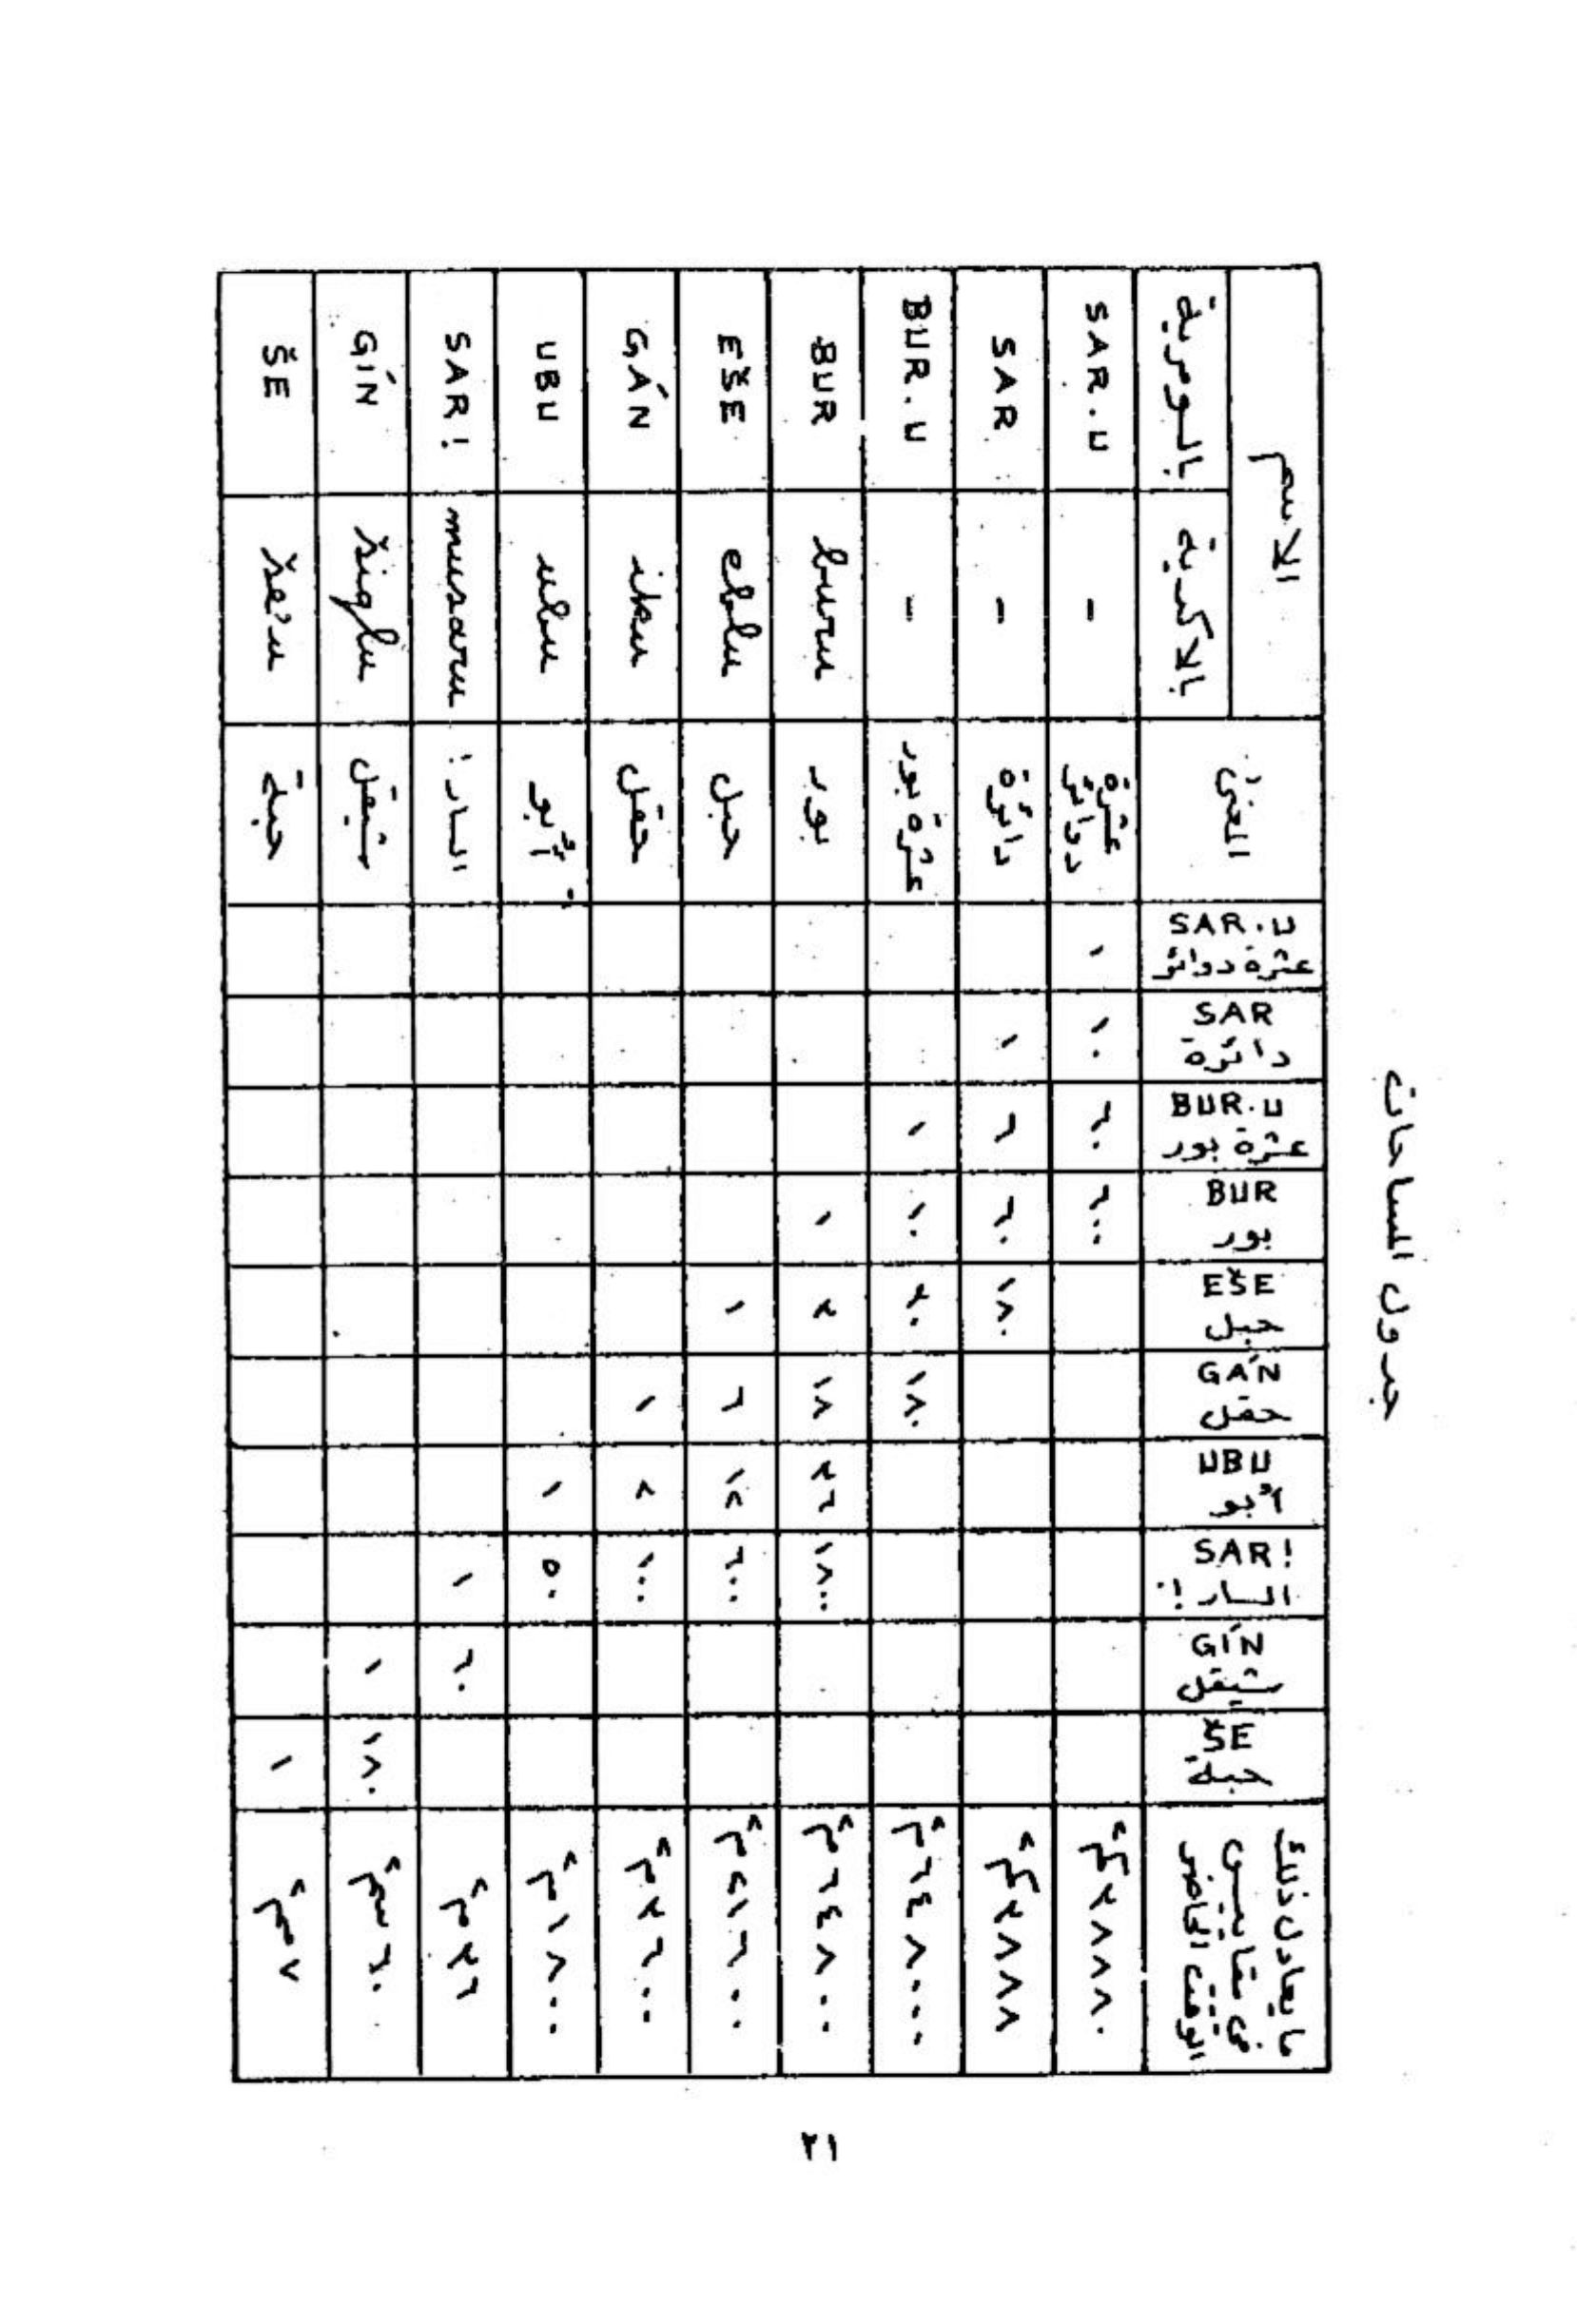 جدول المساحات
الاسم المعنى SAR.U عشرة دوائر SAR دائرة BUR.U عشرة بور BUR بور EŠE حبل GÁN حقل UBU أُبو SAR! السار! GÍN شيقل ŠE حبة ما يعادل ذلك في مقاييس الوقت الحاضر
بالسومرية بالاكدية
SAR.U - عشرة دوائر ١ ١٠ ٦٠ ٦٠٠ ٣٨٨٨٠ كم٢
SAR - دائرة ١ ٦ ٦٠ ١٨٠ ٣٨٨٨ كم٢
BUR.U - عشرة بور ١ ١٠ ٣٠ ١٨٠ ٦٤٨٠٠٠ م٢
BUR buru بور ١ ٣ ١٨ ٣٦ ١٨٠٠ ٦٤٨٠٠ م٢
EŠE eblu حبل ١ ٦ ١٢ ٦٠٠ ٢١٦٠٠ م٢
GÁN iku حقل ١ ٢ ١٠٠ ٣٦٠٠ م٢
UBU ubu أُبو ١ ٥٠ ١٨٠٠ م٢
SAR! musaru السار! ١ ٦٠ ٣٦ م٢
GÍN šiqlu شيقل ١ ١٨٠ ٦٠ سم٢
ŠE še'u حبة ١ ٧
٢١